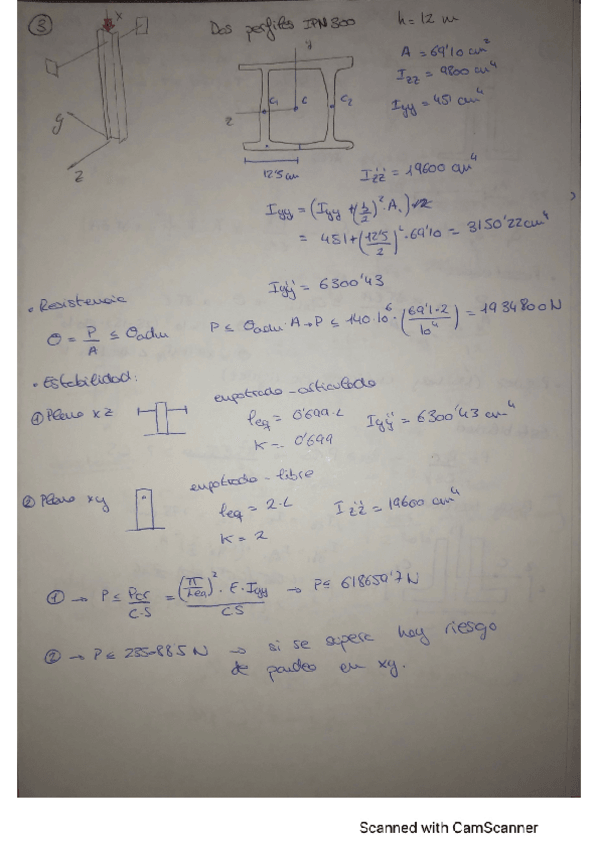 ③ x Dos perfiles IPN 300 h = 12 m
A = 69'10 cm²
Izz = 9800 cm⁴
Iyy = 451 cm⁴
y
C₁ C C₂
z
y
z
12'5 cm
Izz = 19600 cm⁴
Iyy = (Iyy + (h/2)² · A₁) · 2
= 451 + (12'5/2)² · 69'10 = 3150'22 cm⁴
Iyy = 6300'43
• Resistencia
σ = P/A ≤ σadm P ≤ σadm · A → P ≤ 140·10⁶ · (69'1·2/10⁴) = 1934800 N
• Estabilidad:
① Plano xz empotrado - articulado
leq = 0'699·L Iyy = 6300'43 cm⁴
K = 0'699
② Plano xy empotrado - libre
leq = 2·L Izz = 19600 cm⁴
K = 2
① → P ≤ Pcr/C.S = (π/Leq)² · E · Iyy / CS → P ≤ 618659'7 N
② → P ≤ N → si se supera hay riesgo
de pandeo en xy.
Scanned with CamScanner